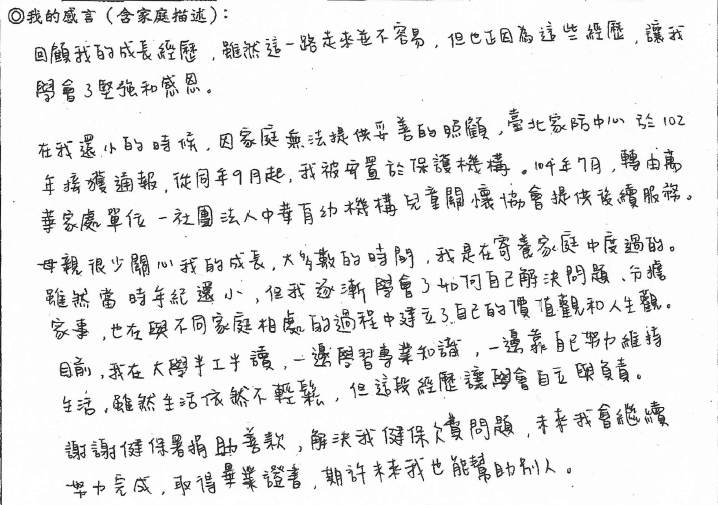 ◎我的感言（含家庭描述）：
回顧我的成長經歷，雖然這一路走來並不容易，但也正因為這些經歷，讓我
學會了堅強和感恩。
在我還小的時候，因家庭無法提供妥善的照顧，臺北家防中心於102
年接獲通報，從同年9月起，我被安置於保護機構。104年7月，轉由萬
華家處單位－社團法人中華育幼機構兒童關懷協會提供後續服務。
母親很少關心我的成長，大多數的時間，我是在寄養家庭中度過的。
雖然當時年紀還小，但我逐漸學會了如何自己解決問題、分擔
家事，也在與不同家庭相處的過程中建立了自己的價值觀和人生觀。
目前，我在大學半工半讀，一邊學習專業知識，一邊靠自己努力維持
生活，雖然生活依然不輕鬆，但這段經歷讓我學會自立與負責。
謝謝健保署捐助善款，解決我健保欠費問題，未來我會繼續
努力完成，取得畢業證書，期許未來我也能幫助別人。